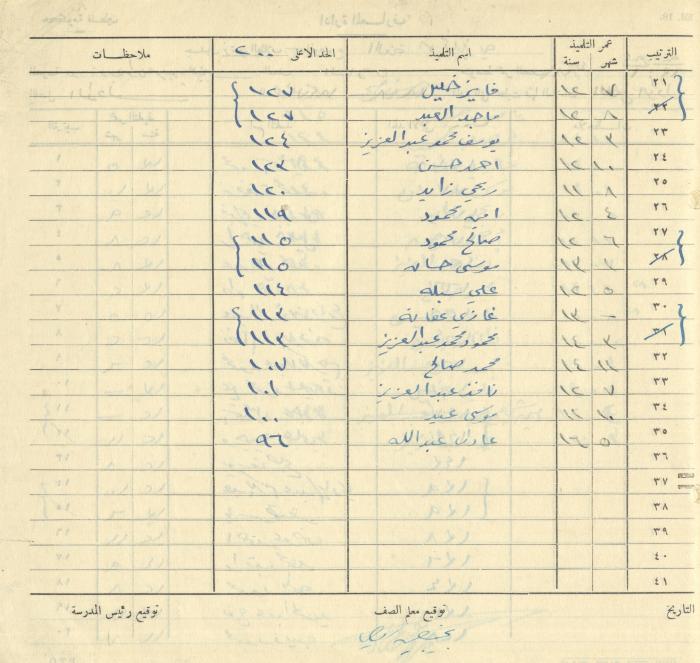 الترتيب عمر التلميذ شهر سنة اسم التلميذ الحد الاعلى ٢٠٠ ملاحظات
٢١ ٧ ١٢ فايز خليل ١٢٧
٢٢ ٨ ١٢ ماجد العبد ١٢٧
٢٣ ٣ ١٢ يوسف محمد عبد العزيز ١٢٤
٢٤ ١٠ ١٢ احمد حسن ١٢٣
٢٥ ٨ ١١ ربحي زايد ١٢٠
٢٦ ٤ ١٢ امين محمود ١١٩
٢٧ ٦ ١٢ صالح محمود ١١٥
٢٨ ١٣ موسى حسان ١١٥
٢٩ ٥ ١٢ علي ١١٤
٣٠ - ١٣ غازي ١١٣
٣١ ٣ ١٤ محمود محمد عبد العزيز ١١٣
٣٢ ١١ ١٤ محمد صالح ١٠٧
٣٣ ٧ ١٢ نافذ عبد العزيز ١٠١
٣٤ ١٠ ١٢ موسى عبيد ١٠٠
٣٥ ٥ ١٦ عادل عبد الله ٩٦
٣٦
٣٧
٣٨
٣٩
٤٠
٤١
التاريخ توقيع معلم الصف توقيع رئيس المدرسة